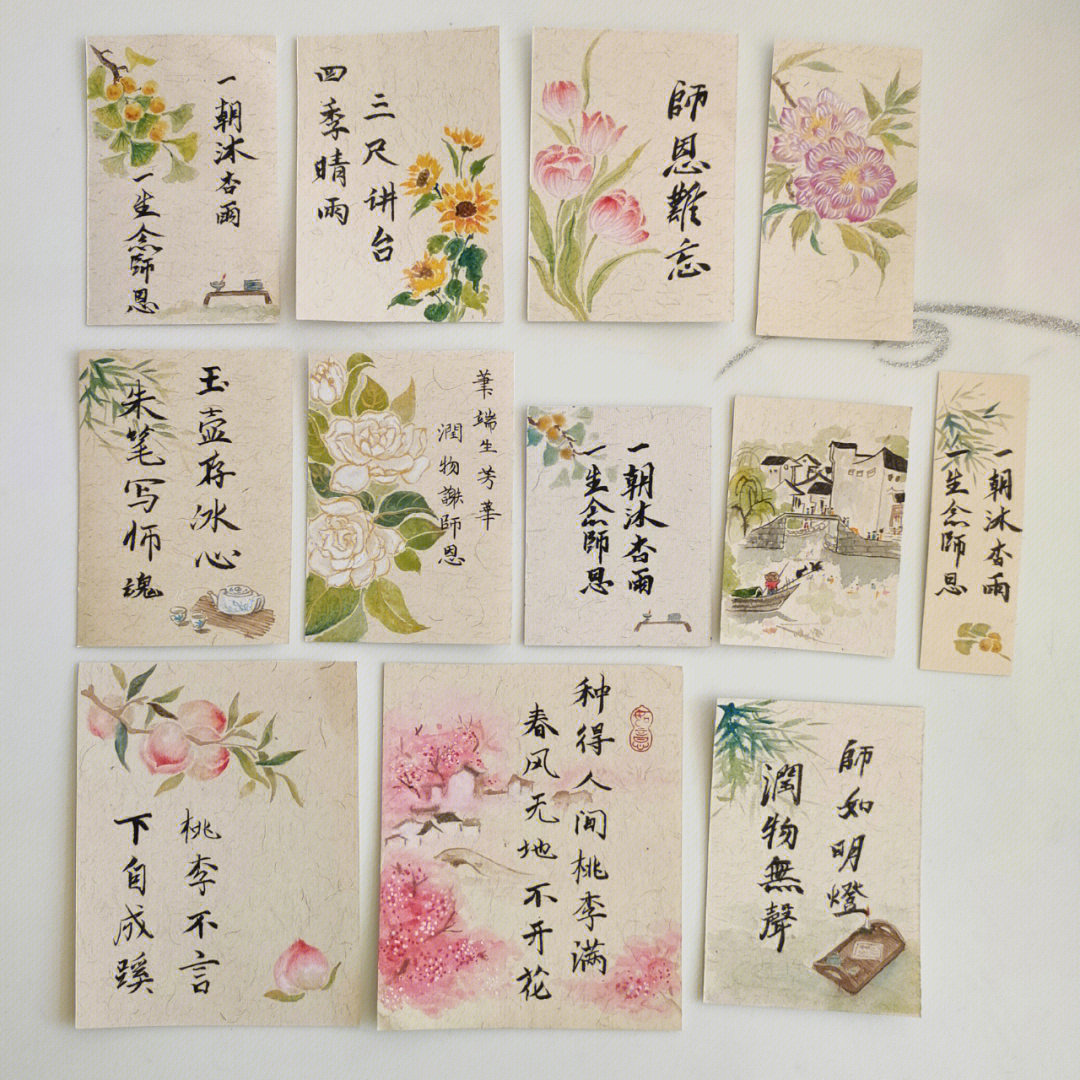 一朝沐杏雨
一生念師恩
三尺讲台
四季晴雨
師恩難忘
玉壶存冰心
朱笔写师魂
筆端生芳華
潤物謝師恩
一朝沐杏雨
一生念師恩
一朝沐杏雨
一生念師恩
桃李不言
下自成蹊
如意
种得人间桃李满
春风无地不开花
師如明燈
潤物無聲